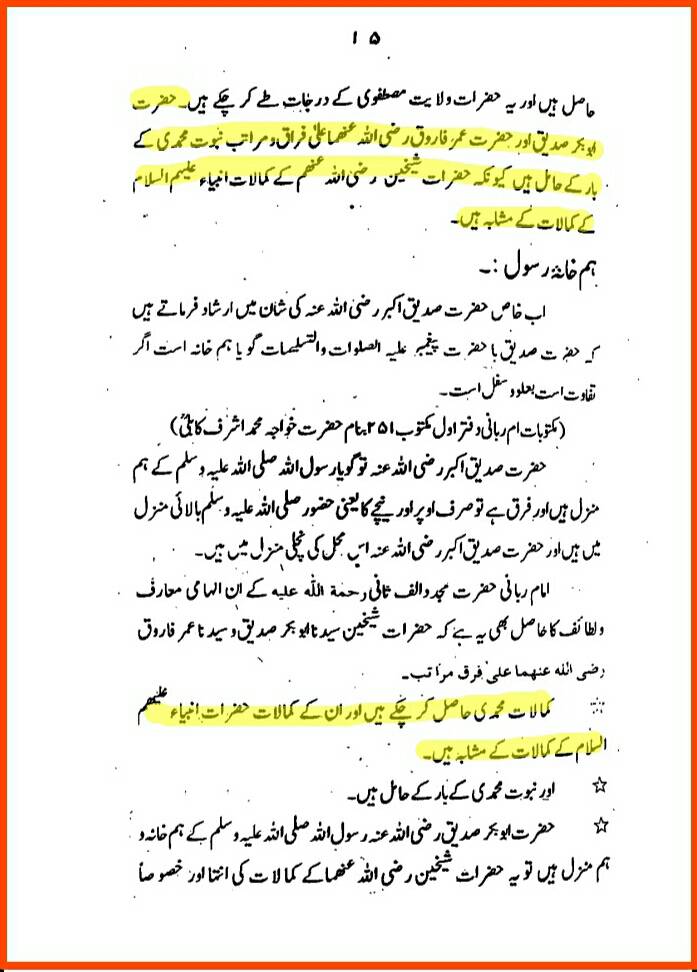 ۱۵
حاصل ہیں اور یہ حضرات ولایت مصطفوی کے درجات طے کر چکے ہیں۔ حضرت
ابوبکر صدیق اور حضرت عمر فاروق رضی اللہ عنھما علیٰ فراق و مراتب نبوت محمدی کے
بار کے حامل ہیں کیونکہ حضرات شیخین رضی اللہ عنھم کے کمالات انبیاء علیہم السلام
کے کمالات کے مشابہ ہیں۔
ہم خانۂ رسول :۔
اب خاص حضرت صدیق اکبر رضی اللہ عنہ کی شان میں ارشاد فرماتے ہیں
کہ حضرت صدیق با حضرت پیغمبر علیہ الصلوات والتسلیمات گویا ہم خانہ است اگر
تفاوت است بعلو و سفل است۔
(مکتوبات ام ربانی دفتر اول مکتوب ۲۵۱ بنام حضرت خواجہ محمد اشرف کابلیؒ)
حضرت صدیق اکبر رضی اللہ عنہ تو گویا رسول اللہ صلی اللہ علیہ وسلم کے ہم
منزل ہیں اور فرق ہے تو صرف اوپر اور نیچے کا یعنی حضور صلی اللہ علیہ وسلم بالائی منزل
میں ہیں اور حضرت صدیق اکبر رضی اللہ عنہ اس محل کی نچلی منزل میں ہیں۔
امام ربانی حضرت مجدد الف ثانی رحمة اللہ علیہ کے ان الہامی معارف
و لطائف کا حاصل بھی یہ ہے کہ حضرات شیخین سیدنا ابوبکر صدیق و سیدنا عمر فاروق
رضی اللہ عنھما علی فرق مراتب۔
☆ کمالات محمدی حاصل کر چکے ہیں اور ان کے کمالات حضرات انبیاء علیھم
السلام کے کمالات کے مشابہ ہیں۔
☆ اور نبوت محمدی کے بار کے حامل ہیں۔
☆ حضرت ابوبکر صدیق رضی اللہ عنہ رسول اللہ صلی اللہ علیہ وسلم کے ہم خانہ و
ہم منزل ہیں تو یہ حضرات شیخین رضی اللہ عنھما کے کمالات کی انتہا اور خصوصاً